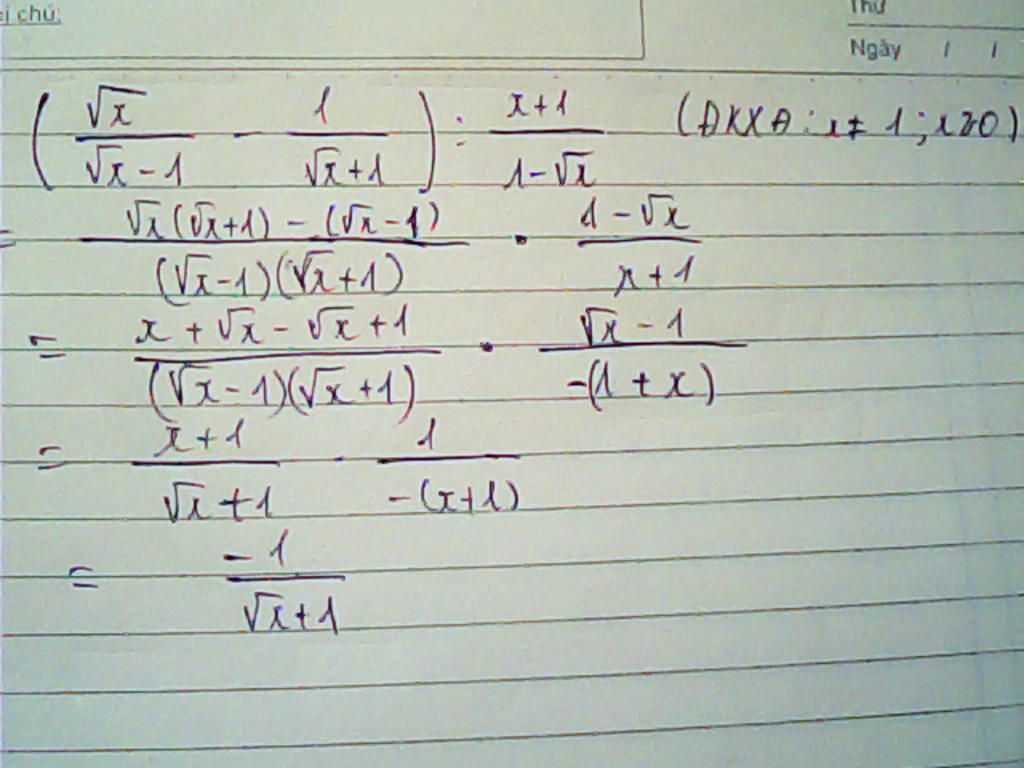 i chú:
Thứ
Ngày / /
( √x / (√x - 1) - 1 / (√x + 1) ) : (x + 1) / (1 - √x) (ĐKXĐ: x ≠ 1; x ≥ 0)
= (√x(√x + 1) - (√x - 1)) / ((√x - 1)(√x + 1)) . (1 - √x) / (x + 1)
= (x + √x - √x + 1) / ((√x - 1)(√x + 1)) . (√x - 1) / (-(1 + x))
= (x + 1) / (√x + 1) . 1 / (-(x + 1))
= -1 / (√x + 1)